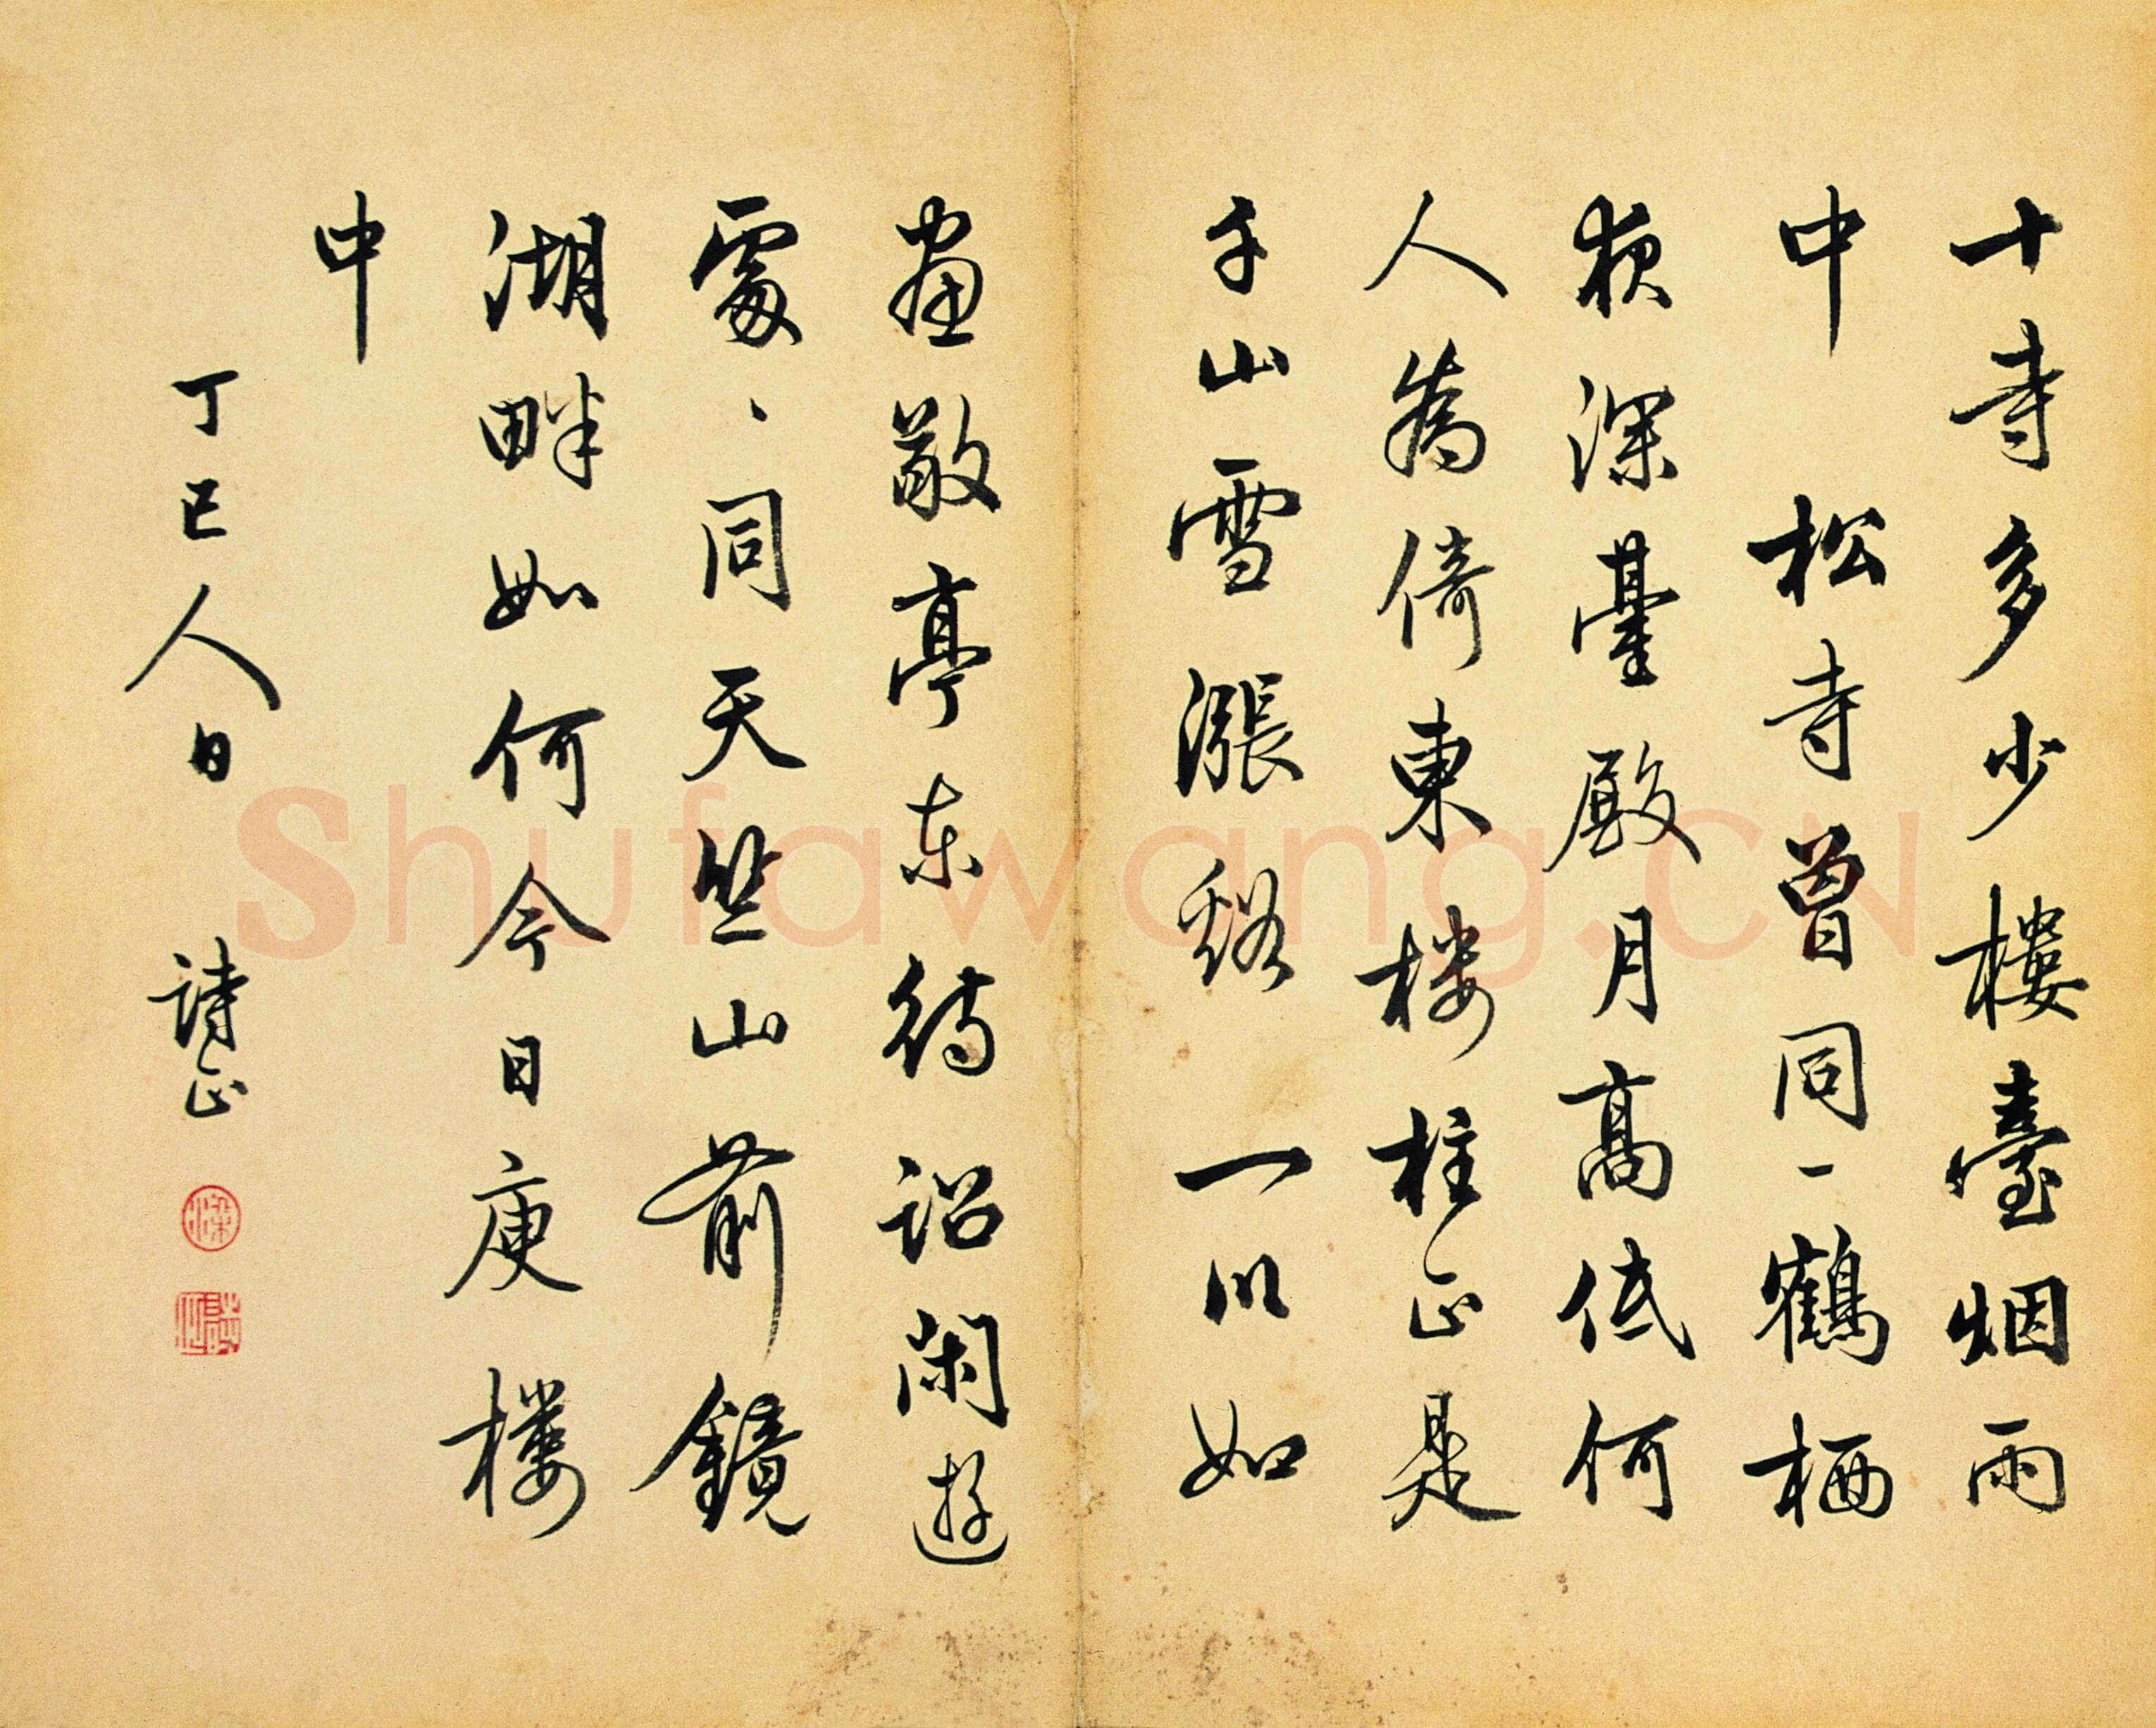 十寺多少樓臺烟雨
中　松寺曾同一鶴栖
夜深臺殿月高低何
人為倚東楼柱正是
千山雪漲谿　一川如
畫敞亭东待詔閑遊
處、同天竺山前鏡
湖畔如何今日庾樓
中
丁巳人日　詩正
shufawang.CN